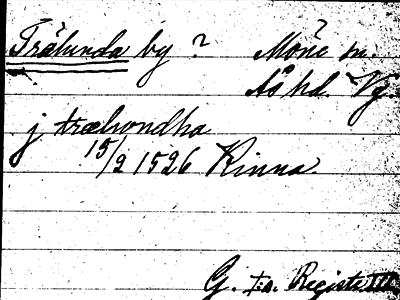 Trälunda by ? Möne sn.
Ås hd. Vg
j trælwondha
15/2 1526 Kinna.
G. I:s. Registr III